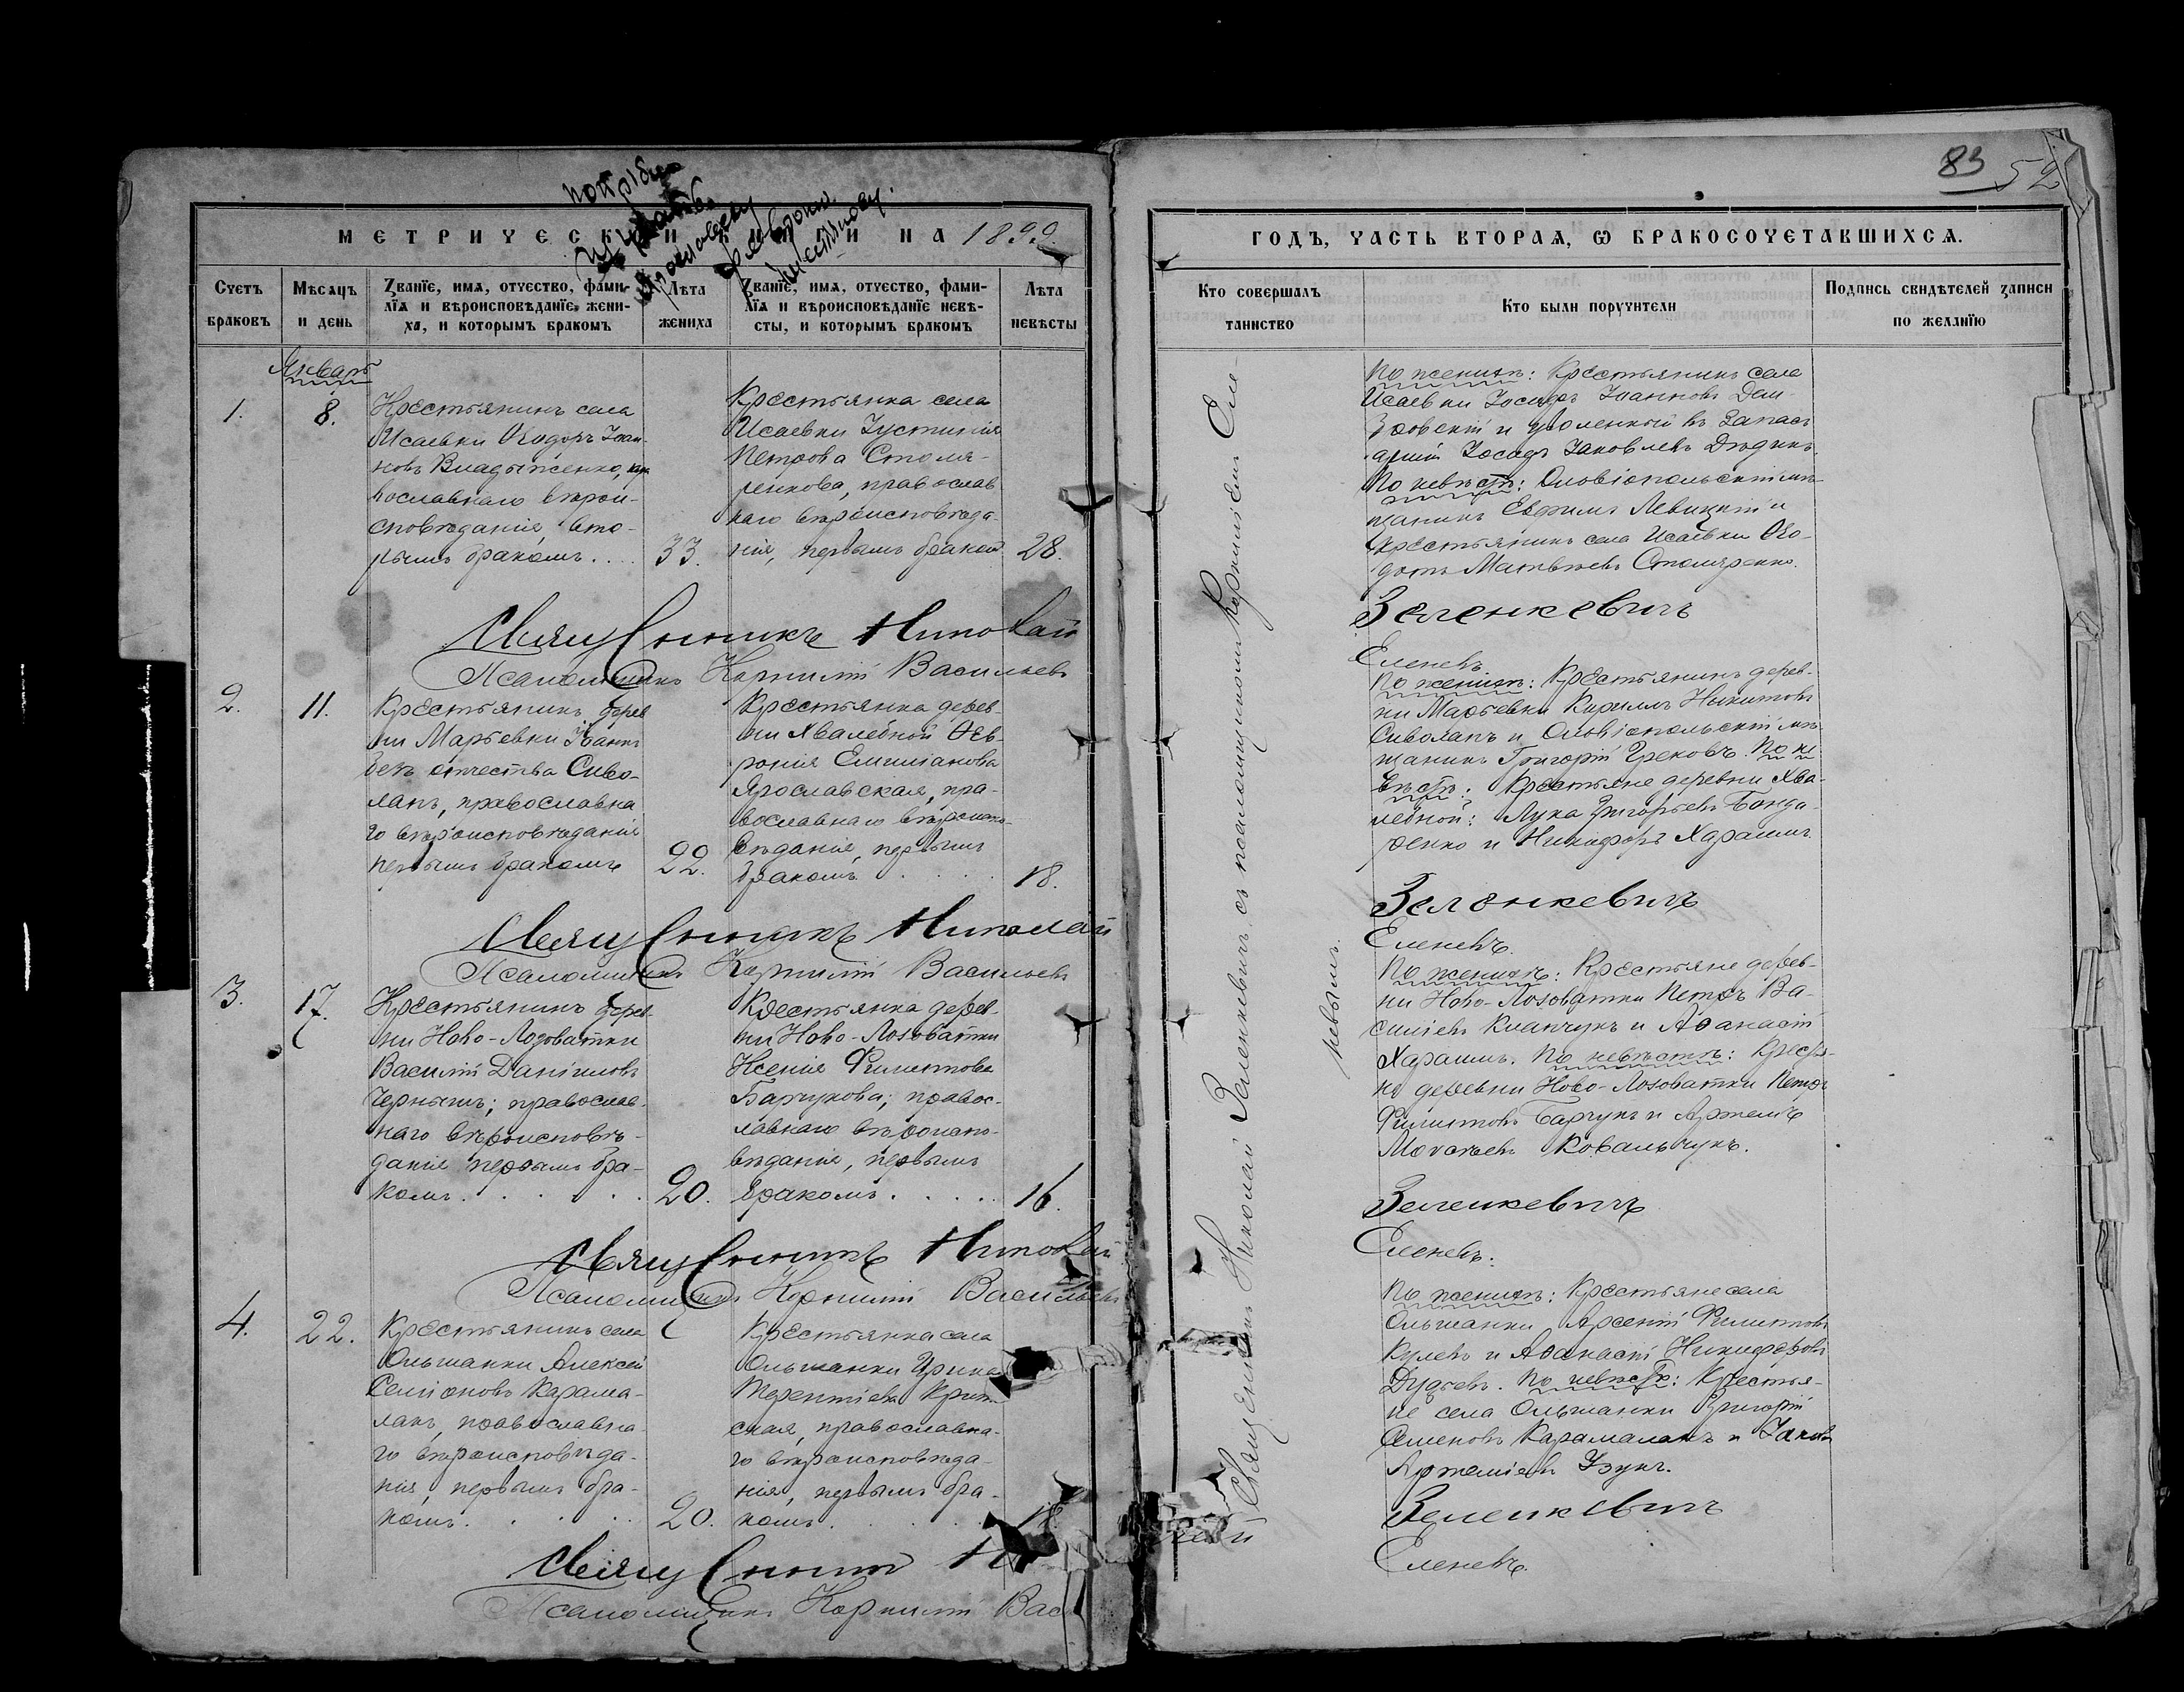 МЕТРИЧЕСКОЙ КНИГИ НА 1899
Счетъ браковъ
Мѣсяцъ и день
Званіе, имя, отчество, фами-
лія и вѣроисповѣданіе жени-
ха, и которымъ бракомъ
Лѣта жениха
Званіе, имя, отчество, фами-
лія и вѣроисповѣданіе невѣ-
сты, и которымъ бракомъ
Лѣта невѣсты
Январь
1.
8.
Крестьянинъ села
Исаевки Ѳеодоръ Іоан-
новъ Владыженко, пра
вославнаго вѣрои-
сповѣданія, вто-
рымъ бракомъ....
33.
Крестьянка села
Исаевки Іустинія
Петрова Столя-
ренкова, православ
наго вѣроисповѣда-
нія, первымъ бракой
28.
Священникъ Николай
Псаломщикъ Корнилій Васильевъ
2.
11.
Крестьянинъ дерев
ни Марьевки Іоаннъ
безъ отчества Сиво-
лапъ, православна
го вѣроисповѣданія
первымъ бракомъ
22.
Крестьянка дерев-
ни Хвалебной Ѳев-
ронія Емиліанова
Ярославская, пра-
вославнаго вѣроиспо-
вѣданія, первымъ
бракомъ....
18.
Священникъ Николай
Псаломщикъ Корнилій Васильевъ
3.
17.
Крестьянинъ дерев-
ни Ново-Лозоватки
Василій Даніиловъ
Чернышъ; православ-
наго вѣроисповѣ-
данія первымъ бра-
комъ.....
20.
Крестьянка дерев-
ни Ново-Лозоватки
Ксенія Филиппова
Барчукова; правос-
лавнаго вѣроиспо-
вѣданія, первымъ
бракомъ.....
16.
Священникъ Николай
Псаломщикъ Корнилій Васильевъ
4.
22.
Крестьянинъ села
Ольшанки Алексѣй
Симіоновъ Карама-
лакъ, православна-
го вѣроисповѣда-
нія, первымъ бра-
комъ....
20.
Крестьянка села
Ольшанки Ирина
Терентіева
ская, православна-
го вѣроисповѣда-
нія, первымъ бра-
комъ....
18.
Священникъ
Псаломщикъ Корнилій Вас
83 52
ГОДЪ, ЧАСТЬ ВТОРАЯ, Ѡ БРАКОСОЧЕТАВШИХСЯ.
Кто совершалъ таинство
Кто были поручители
Подпись свидѣтелей записи по желанію
Священникъ Николай Зеленкевичъ съ псаломщикомъ Корниліемъ Еле-
невымъ.
По женихѣ: Крестьянинъ села
Исаевки Іосифъ Іоанновъ Дем-
бовскій и уволенный въ запасъ
арміи Іосифъ Іаковлевъ Дѣдикъ.
По невѣстѣ: Ольвіопольскій мѣ-
щанинъ Евфимъ Левицкій и
крестьянинъ села Исаевки Ѳео-
дотъ Матвѣевъ Столяренко.
Зеленкевичъ
Еленевъ.
По женихѣ: Крестьянинъ дерев-
ни Марьевки Кириллъ Никитовъ
Сиволапъ и Ольвіопольскій мѣ-
щанинъ Григорій Грековъ. По не
вѣстѣ: Крестьяне деревни Хва-
лебной: Лука Григорьевъ Бонда-
ренко и Никифоръ Харашъ.
Зеленкевичъ
Еленевъ.
По женихѣ: Крестьяне дерев-
ни Ново-Лозоватки Петръ Ва-
силіевъ Климчукъ и Аѳанасій
Харашъ. По невѣстѣ: Крестья-
не деревни Ново-Лозоватки Петръ
Филипповъ Барчукъ и Артемій
Ковальчукъ.
Зеленкевичъ
Еленевъ.
По женихѣ: Крестьяне села
Ольшанки Арсеній Филипповъ
Кулевъ и Аѳанасій Никифоровъ
Дудьевъ. По невѣстѣ: Крестья-
не села Ольшанки Григорій
Симеоновъ Карамалакъ и Іаковъ
Артеміевъ Узунъ.
Зеленкевичъ
Еленевъ.